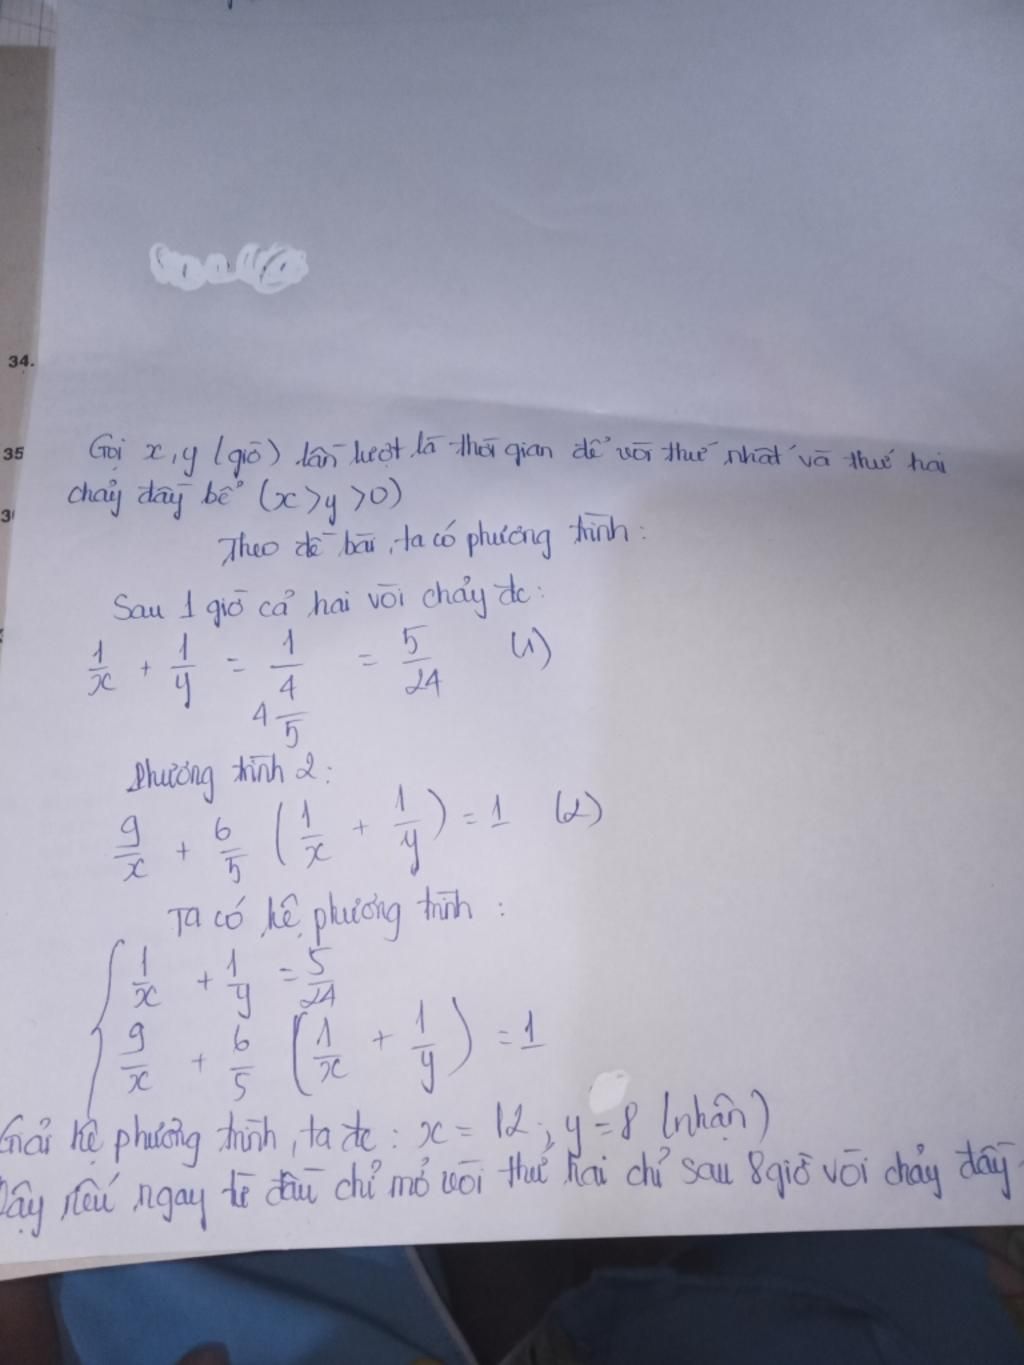 34.
35
Gọi x, y (giờ) lần lượt là thời gian để vòi thứ nhất và thứ hai
chảy đầy bể (x > y > 0)
Theo đề bài, ta có phương trình:
Sau 1 giờ cả hai vòi chảy đc:
1/x + 1/y = 1/(4 4/5) = 5/24 (1)
Phương trình 2:
9/x + 6/5 (1/x + 1/y) = 1 (2)
Ta có hệ phương trình:
1/x + 1/y = 5/24
9/x + 6/5 (1/x + 1/y) = 1
Giải hệ phương trình, ta đc: x = 12; y = 8 (nhận)
Vậy nếu ngay từ đầu chỉ mở vòi thứ hai chỉ sau 8 giờ vòi chảy đầy